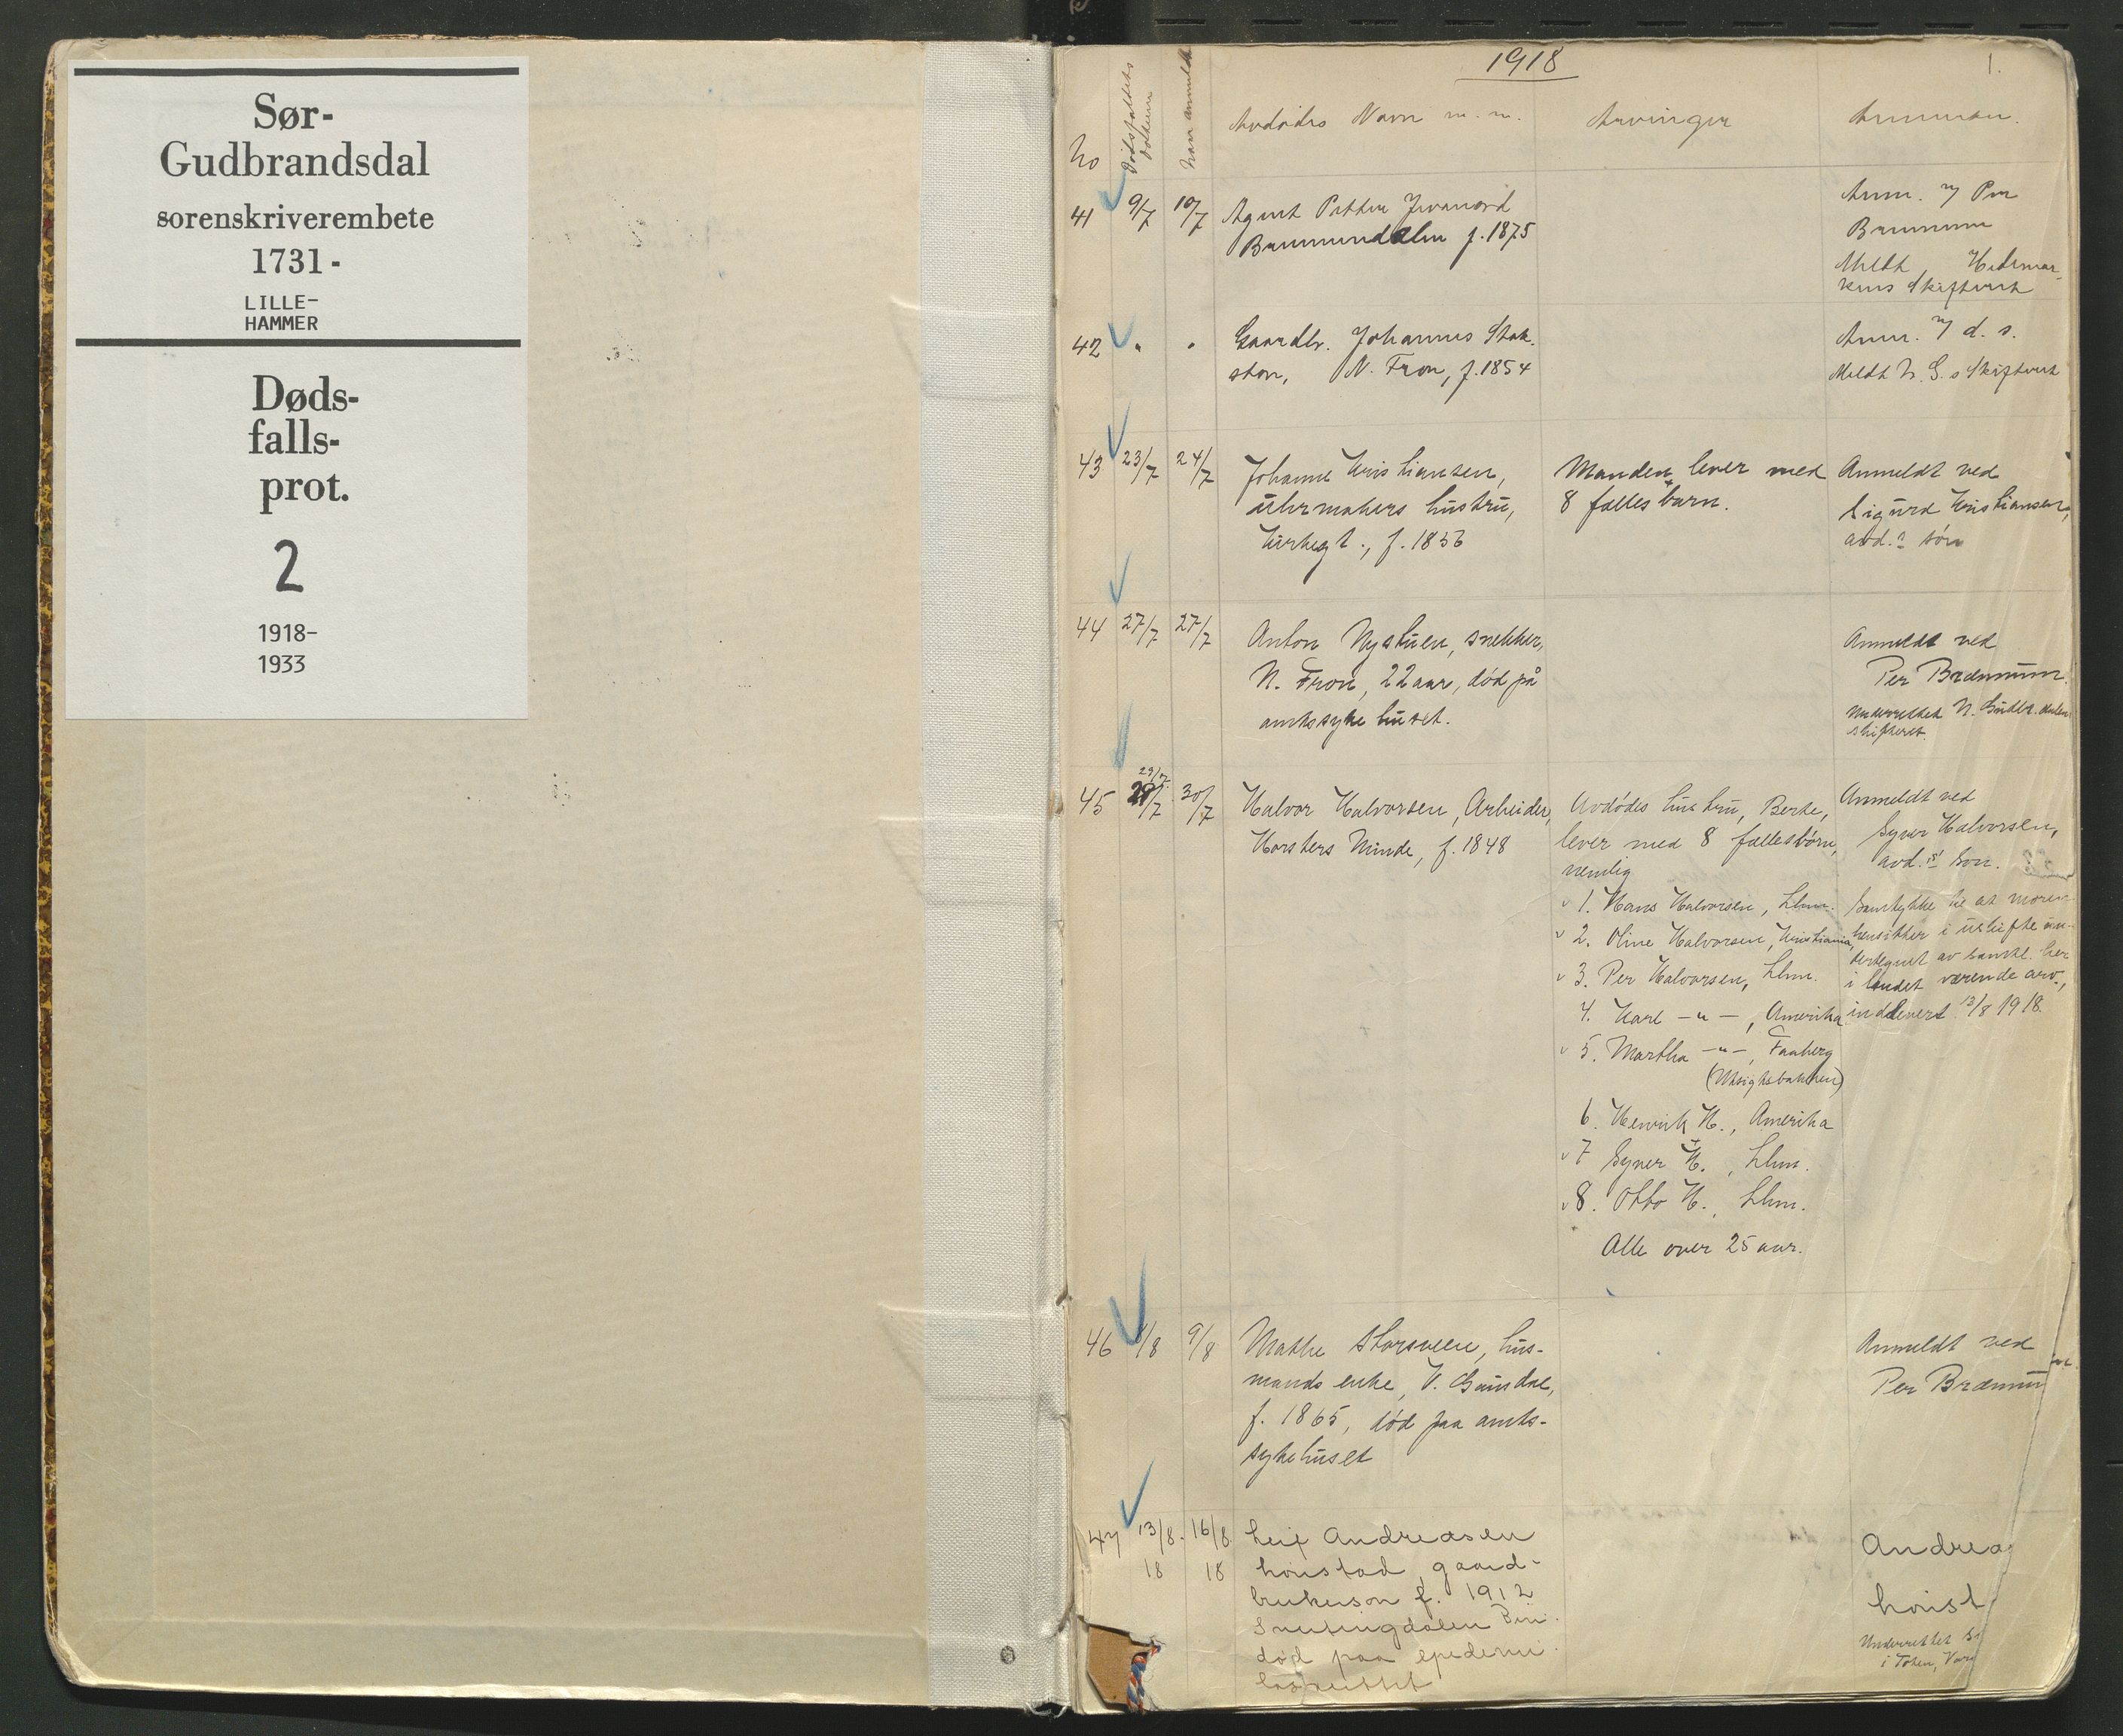 Sør-
Gudbrandsdal
sorenskriverembete
1731-
LILLE-
HAMMER
Døds-
falls-
prot.
2
1918-
1933
1918
1.
No
Dødsfaldets
Datum
Naar anmeldt
Avdødes Navn m. m.
Arvinger
Anmerkn.
41 9/7 10/7
Agent Petter
Brummundalen f. 1875
Anm. v/ Per
Brænmum
Meldt Hedemar-
kens Skifterett
42 " "
Gaardbr. Johannes Stok-
ston, N. Fron, f. 1854
Anm. v/ d. s.
Meldt N. G. s Skifterett
43 23/7 24/7
Johanne Kristiansen,
uhrmakers hustru,
Kirkegt., f. 1856
Manden lever med
8 fælles barn.
Anmeldt ved
Sigurd Kristiansen,
avd.s søn
44 27/7 27/7
Anton Nystuen, snekker,
N. Fron, 22 aar, død på
amtssykehuset.
Anmeldt ved
Per Brænmum.
Underrettet N. Gudbr.dalen
skifteret.
45 29/7 30/7
Halvor Halvorsen, Arbeider,
Korsters Minde, f. 1848
Avdødes hustru, Berte,
lever med 8 fællesbørn,
nemlig
1. Hans Halvorsen, Lhmr.
2. Oline Halvorsen, Kristiania,
3. Per Halvorsen, Lhmr.
4. Karl -"-, Amerika
5. Martha -"-, Faaberg
(Utsigtsbakken)
6. Henrik H., Amerika
7 Syver H., Lhmr.
8. Otto H., Lhmr.
Alle over 25 aar.
Anmeldt ved
Syver Halvorsen,
avd.s søn.
Samtykke til at moren
hensitter i uskifte un-
dertegnet av samtl. her
i landet værende arv.,
inddlevert 13/8 1918.
46 /8 9/8
Mathe Storsveen, hus-
mands enke, V. Gausdal,
f. 1865, død paa amts-
sykehuset
Anmeldt ved
Per Brænmum
47 13/8 - 16/8
18 18
Leif Andreasen
gaard-
brukerson f. 1912
Snertingdalen Biri.
død paa epedemi
lasarettet
Andrea
Underrettet
i Toten, Vard